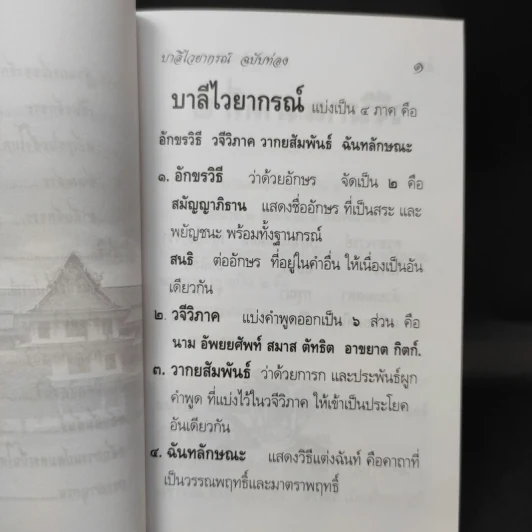 บาลีไวยากรณ์ ฉบับท่อง
๑
บาลีไวยากรณ์ แบ่งเป็น ๔ ภาค คือ
อักขรวิธี วจีวิภาค วากยสัมพันธ์ ฉันทลักษณะ
๑. อักขรวิธี ว่าด้วยอักษร จัดเป็น ๒ คือ
สมัญญาภิธาน แสดงชื่ออักษร ที่เป็นสระ และ
พยัญชนะ พร้อมทั้งฐานกรณ์
สนธิ ต่ออักษร ที่อยู่ในคำอื่น ให้เนื่องเป็นอัน
เดียวกัน
๒. วจีวิภาค แบ่งคำพูดออกเป็น ๖ ส่วน คือ
นาม อัพยยศัพท์ สมาส ตัทธิต อาขยาต กิตก์.
๓. วากยสัมพันธ์ ว่าด้วยการก และประพันธ์ผูก
คำพูด ที่แบ่งไว้ในวจีวิภาค ให้เข้าเป็นประโยค
อันเดียวกัน
๔. ฉันทลักษณะ แสดงวิธีแต่งฉันท์ คือคาถาที่
เป็นวรรณพฤทธิ์และมาตราพฤทธิ์